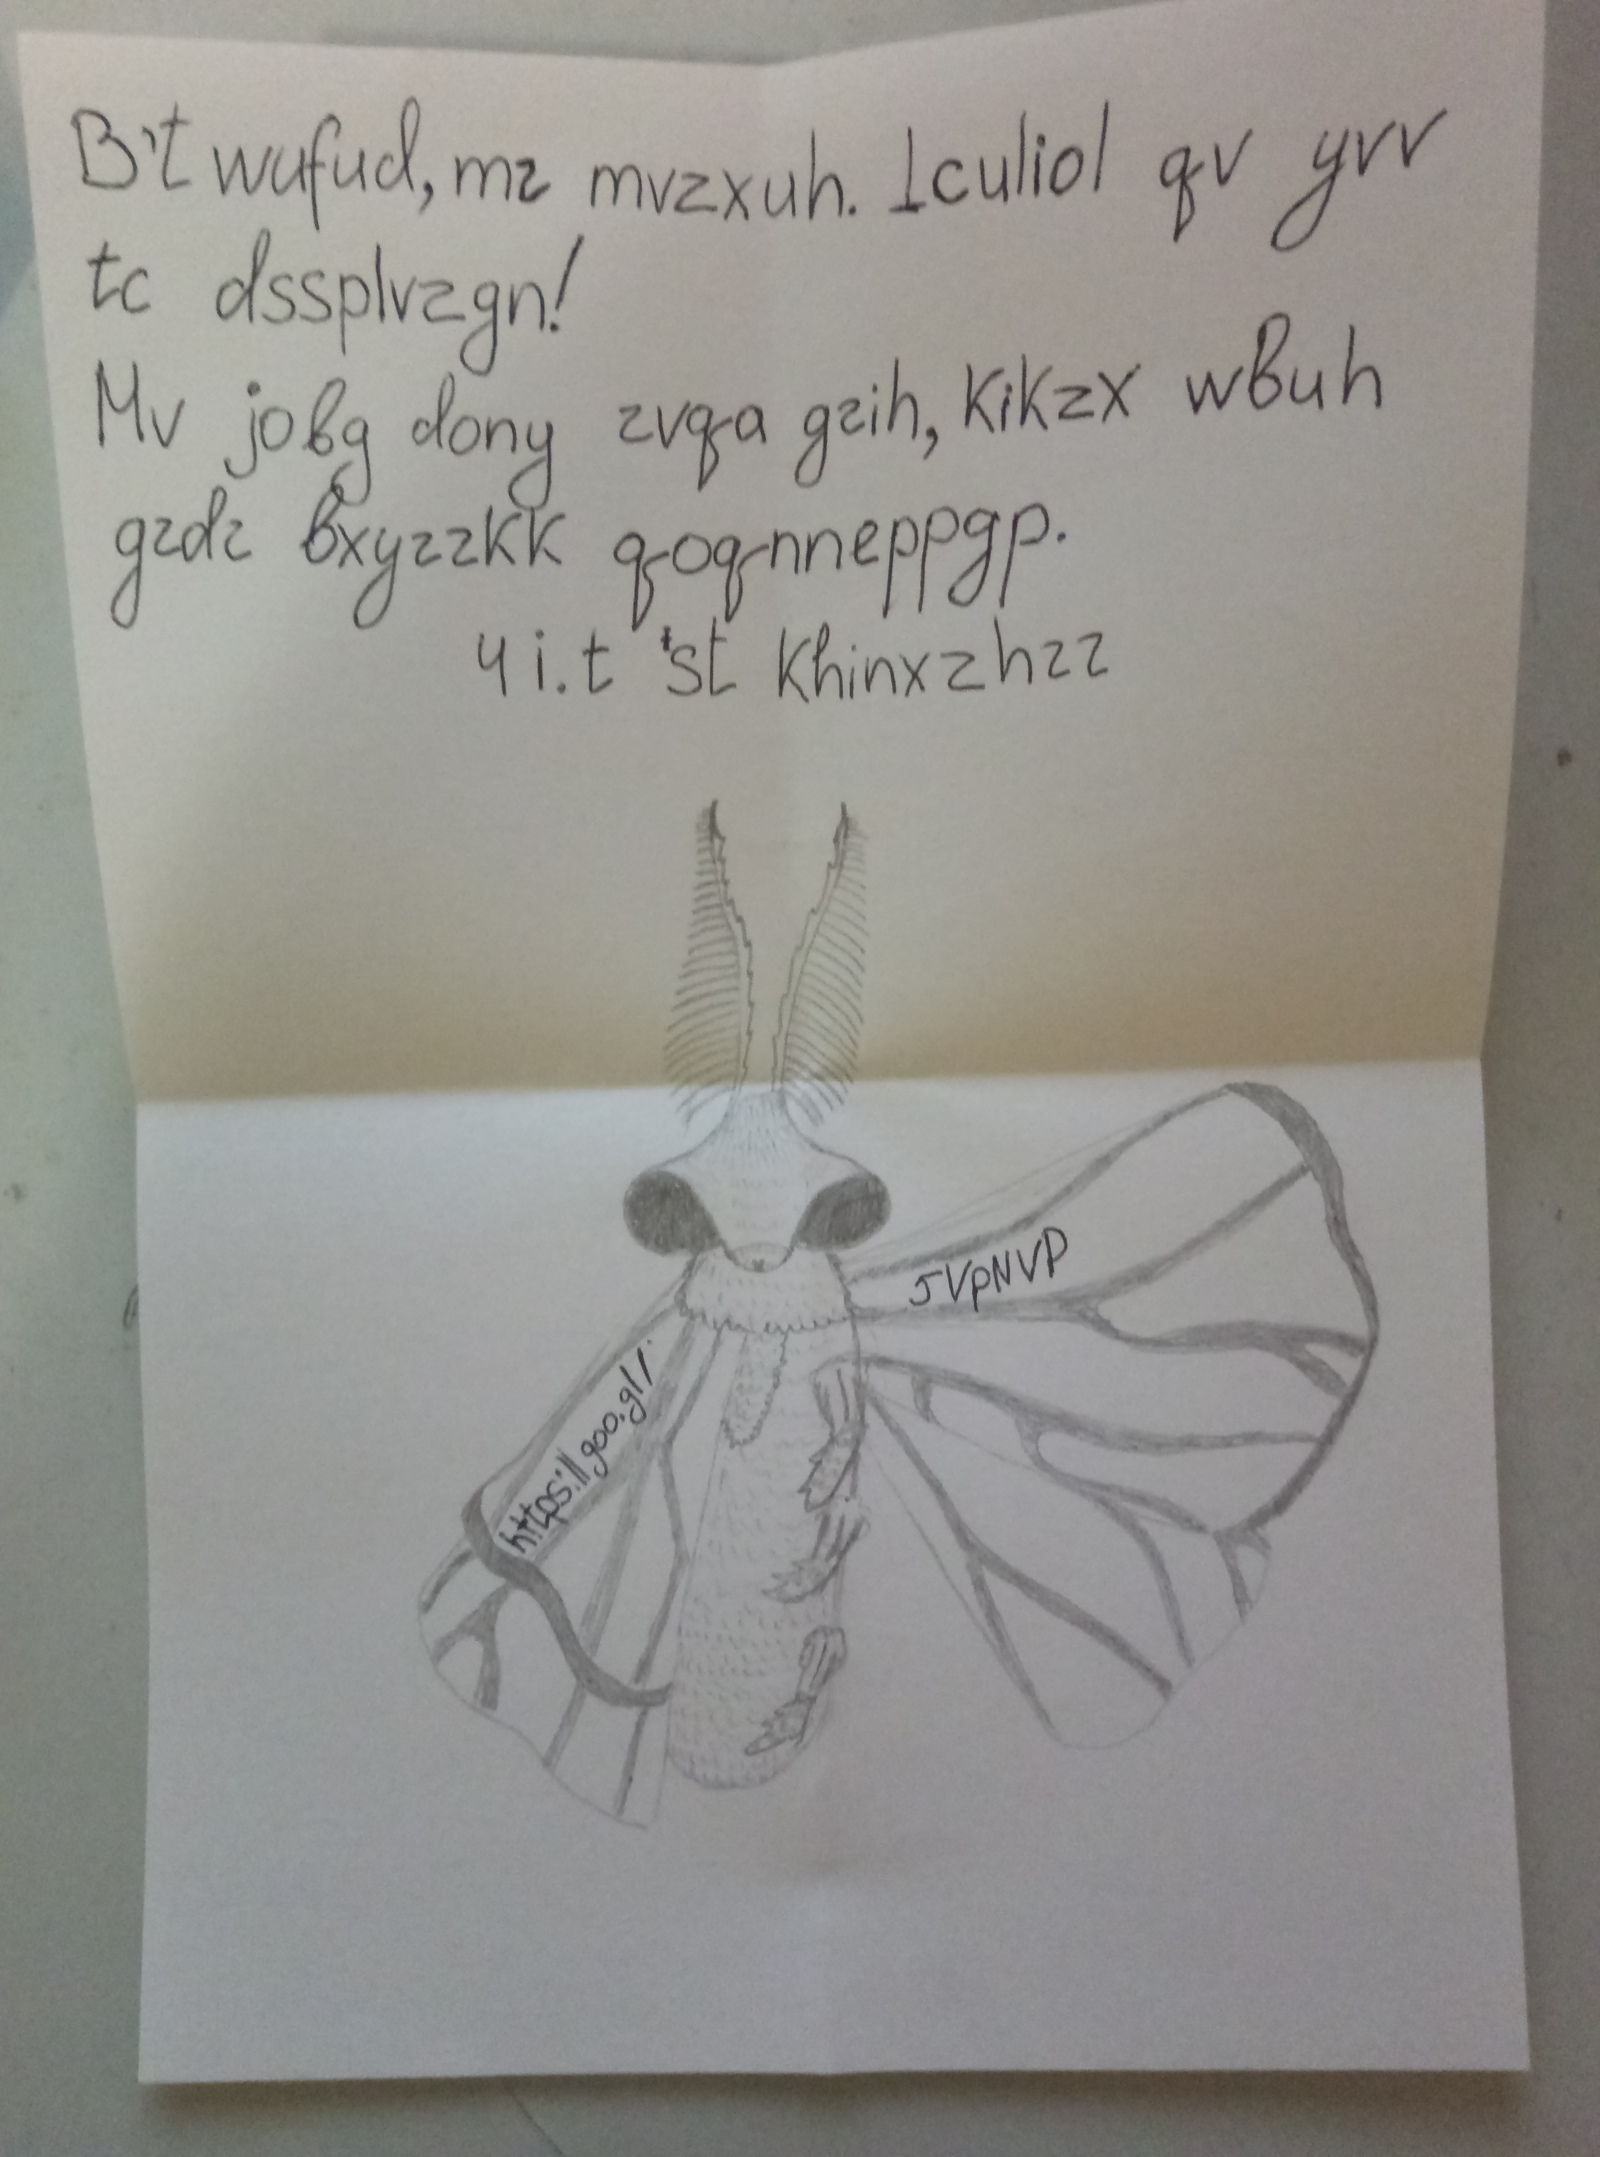 B't wufud, mz mvzxuh. Iculiol qv yvv
tc dssplvzgn!
Mv jobg dony zvqa gzih, kikzx wbuh
gzdz bxyzzkk qoqnneppgp.
4 i.t 'st khinxzhzz
JVpNVP
https://goo.gl/